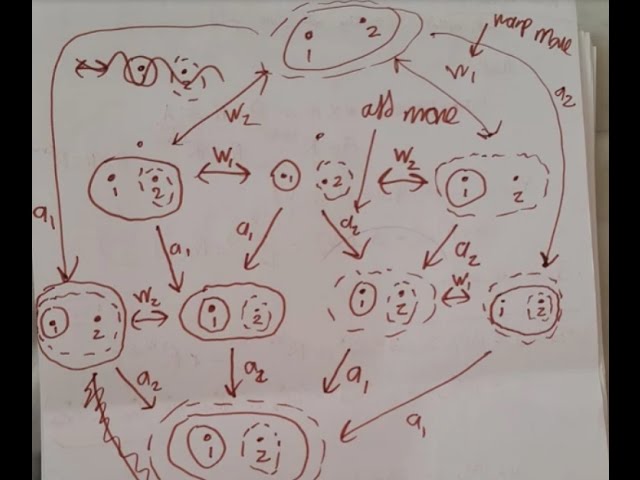 warp move
1 2
W₁
W₂
a₂
add move
1 2
W₁
1 2
W₂
1 2
a₁
a₁
a₁
a₂
a₂
1 2
W₂
1 2
1 2
W₁
1 2
a₂
a₂
a₁
a₁
1 2